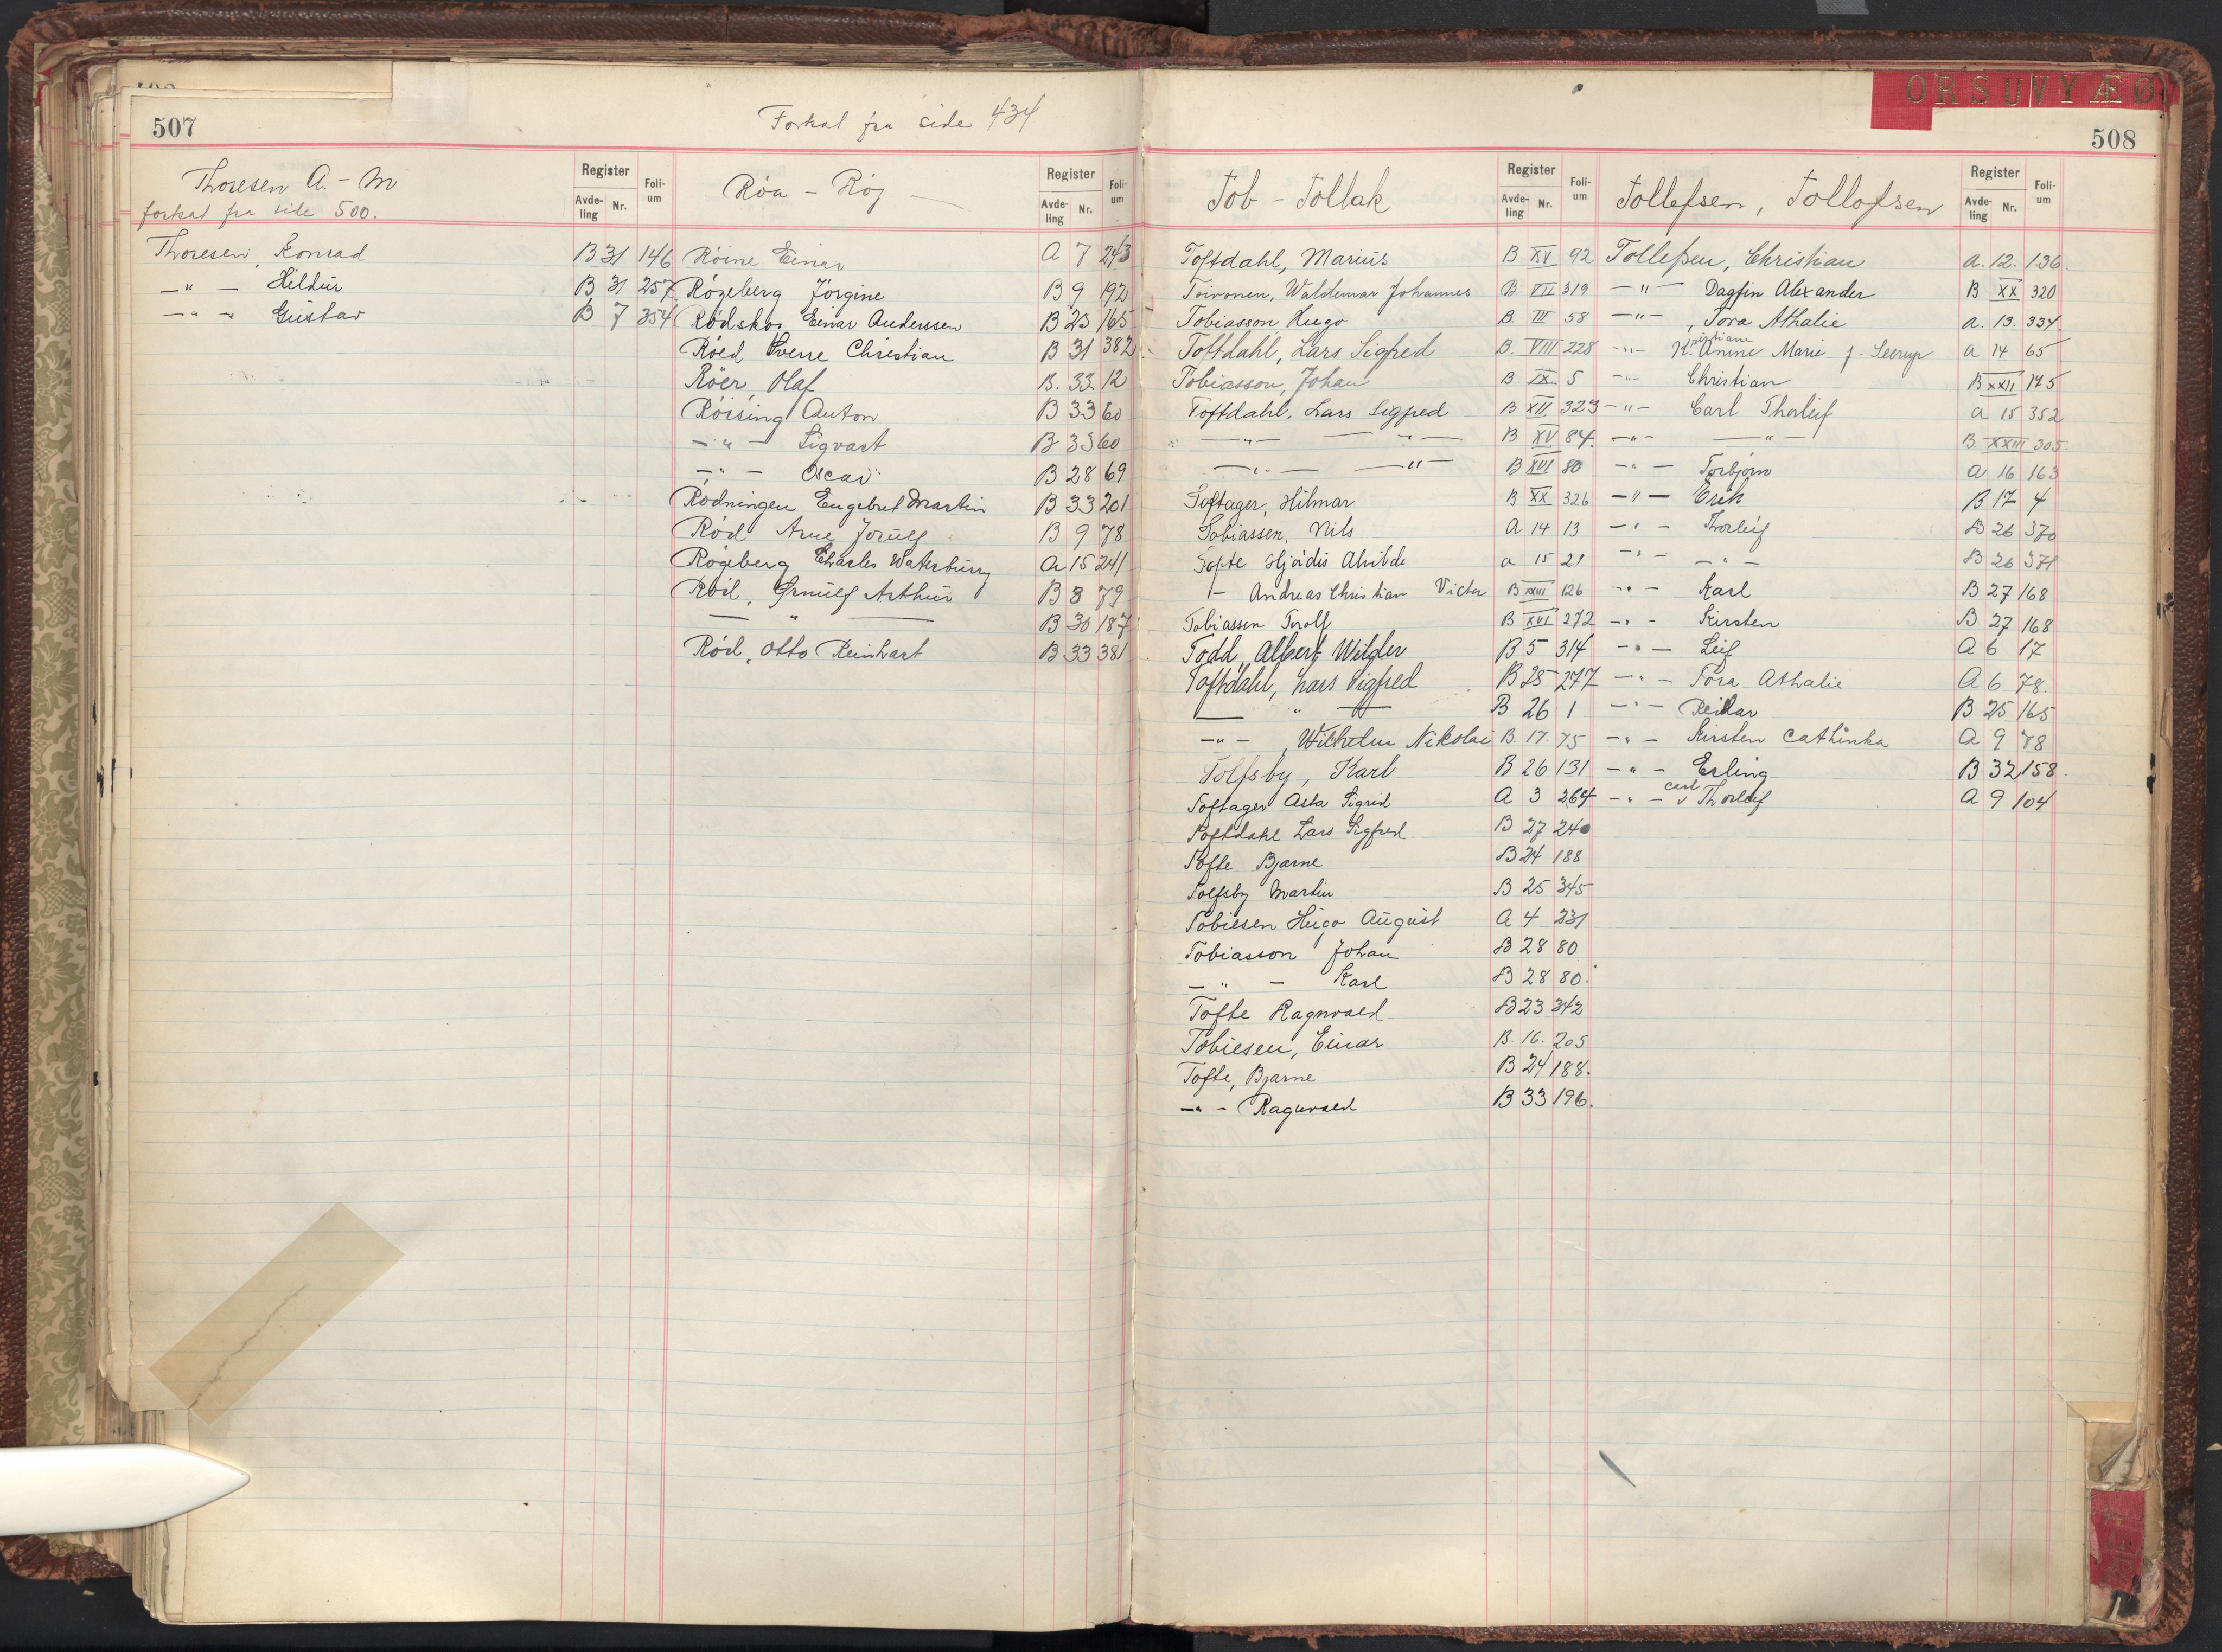 507
Forsat fra side 434
Thoresen A. - M
forsat fra side 500.
Register
Avde-ling Nr. Foli-um
Thoresen, Konrad B 31 146
-"- Hildur B 31 257
-"- Gustav B 7 354
Röa - Röj
Register
Avde-ling Nr. Foli-um
Röine Einar A 7 243
Rögeberg Jörgine B 9 192
Rödskos Einar Anderssen B 23 165
Röed Sverre Christian B 31 382
Röer, Olaf B. 33 12
Röising Anton B 33 60
-"- Sigvart B 33 60
-"- Oscar B 28 69
Rödningen Engebret Martin B 33 201
Röd Arne Jörulf B 9 78
Rögeberg Charles Waterbury A 15 241
Röd, Ornulf Arthur B 8 79
- " - B 30 187
Röd, Otto Reinhart B 33 381
ORSUVYÆØ
508
Tob - Tollak
Register
Avde-ling Nr. Foli-um
Toftdahl, Marius B XV 92
Toivonen, Waldemar Johannes B. VII 319
Tobiasson Hugo B. III 58
Toftdahl, Lars Sigfred B. VIII 228
Tobiasson, Johan B. IX 5
Toftdahl, Lars Sigfred B XII 323
-"- -"- B XV 84
-"- -"- B XVI 80
Toftager, Hilmar B XX 326
Tobiassen, Nils A 14 13
Tofte Hjördis Alvilde a 15 21
- Andreas Christian Victor B XXIII 126
Tobiassen Torolf B XVI 272
Todd, Albert Wilder B 5 314
Toftdahl, Lars Sigfred B 25 277
- " - B 26 1
-"-, Wilhelm Nikolai B. 17 75
Tolfsby, Karl B 26 131
Toftager Asta Sigrid A 3 264
Toftdahl Lars Sigfred B 27 240
Tofte Bjarne B 24 188
Tolfsby Martin B 25 345
Tobiesen Hugo August A 4 231
Tobiasson Johan B 28 80
- " - Karl B 28 80.
Tofte Ragnvald B 23 342
Tobiesen, Einar B. 16. 205
Tofte, Bjarne B 24 188.
-"- Ragnvald B 33 196.
Tollefsen, Tollofsen
Register
Avde-ling Nr. Foli-um
Tollefsen, Christian A. 12. 136.
-"- Dagfin Alexander B XX 320
-"-, Tora Athalie a. 13. 334.
-"- Kristiane Anine Marie f. Seerup a 14 65
-"- Christian B XXII 175
-"- Carl Thorleif a 15 352
-"- -"- B. XXIII 305.
-"- Torbjörn a 16 163
-"- Erik B 17 4
-"- Thorleif B 26 370
-"- -"- B 26 371
-"- Karl B 27 168
-"- Kirsten B 27 168
-"- Leif A 6 17
-"- Tora Athalie A 6 78.
-"- Reidar B 25 165
-"- Kirsten Cathinka A 9 78
-"- Erling B 32 158.
-"- Carl Thorleif A 9 104